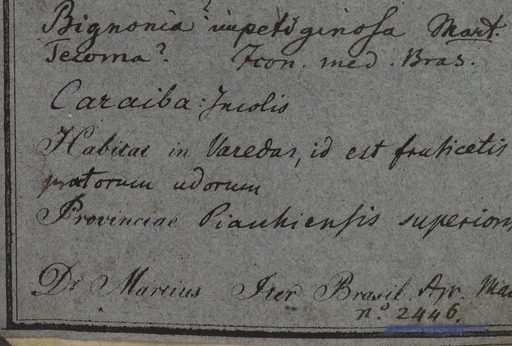 Bignonia? impetiginosa Mart.
Tecoma? Icon. med. Bras.
Caraiba: Incolis
Habitat in Varedas, id est fruticetis
pratorum udorum
Provinciae Piauhiensis superioris
Dr Martius Iter Brasil. Apr. Mai
n.o 2446.